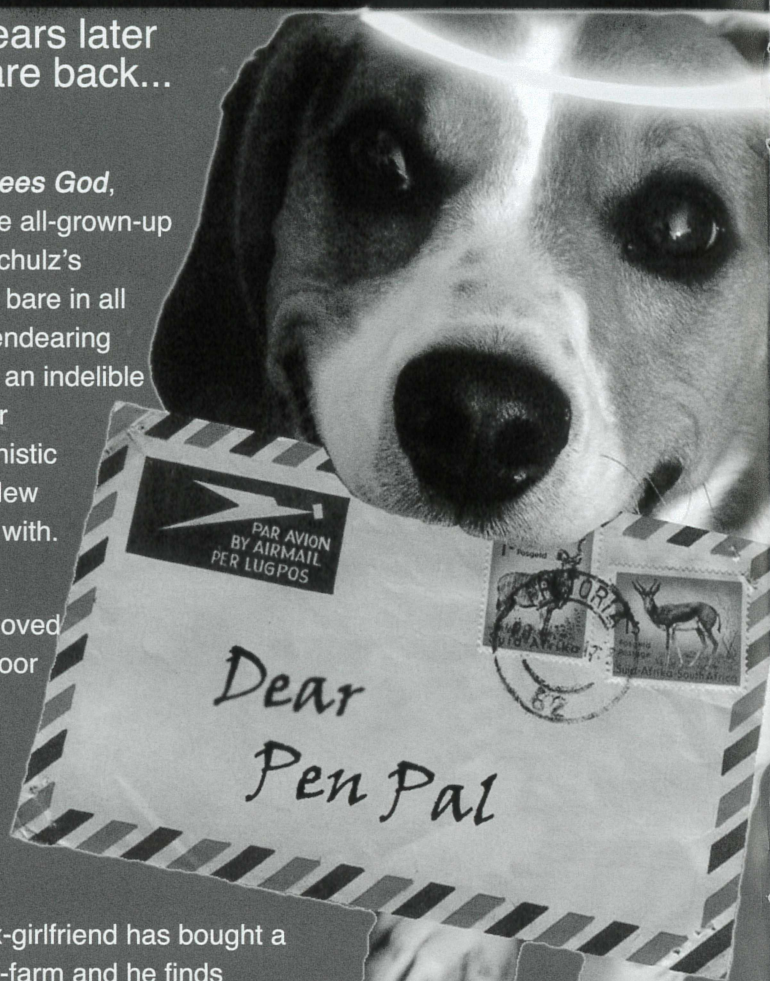 ears later
are back...
ees God,
e all-grown-up
chulz's
bare in all
endearing
an indelible
r
nistic
New
with.
oved
oor
PAR AVION
BY AIRMAIL
PER LUGPOS
Posgeld
Suid-Afrika
PRETORIA
62
Posgeld
Postage
Suid-Afrika-South Africa
Dear
Pen Pal
-girlfriend has bought a
-farm and he finds